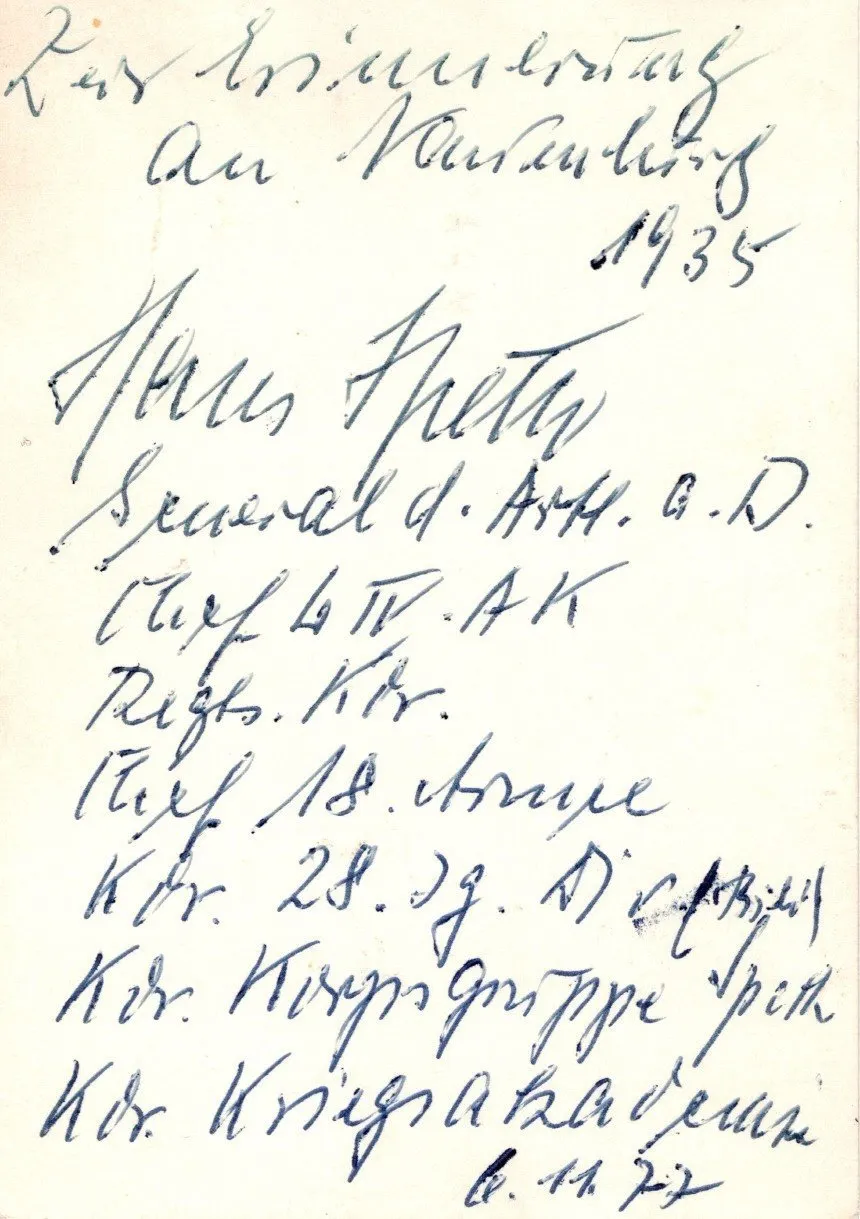 Zur Erinnerung
an Naumburg
1935
Hans Speth
General d. Artl. a. D.
Chef IV. AK
Regts. Kdr.
Chef 18. Armee
Kdr. 28. Jg. Div
Kdr. Korpsgruppe Speth
Kdr. Kriegsakademie
6. 11. 77